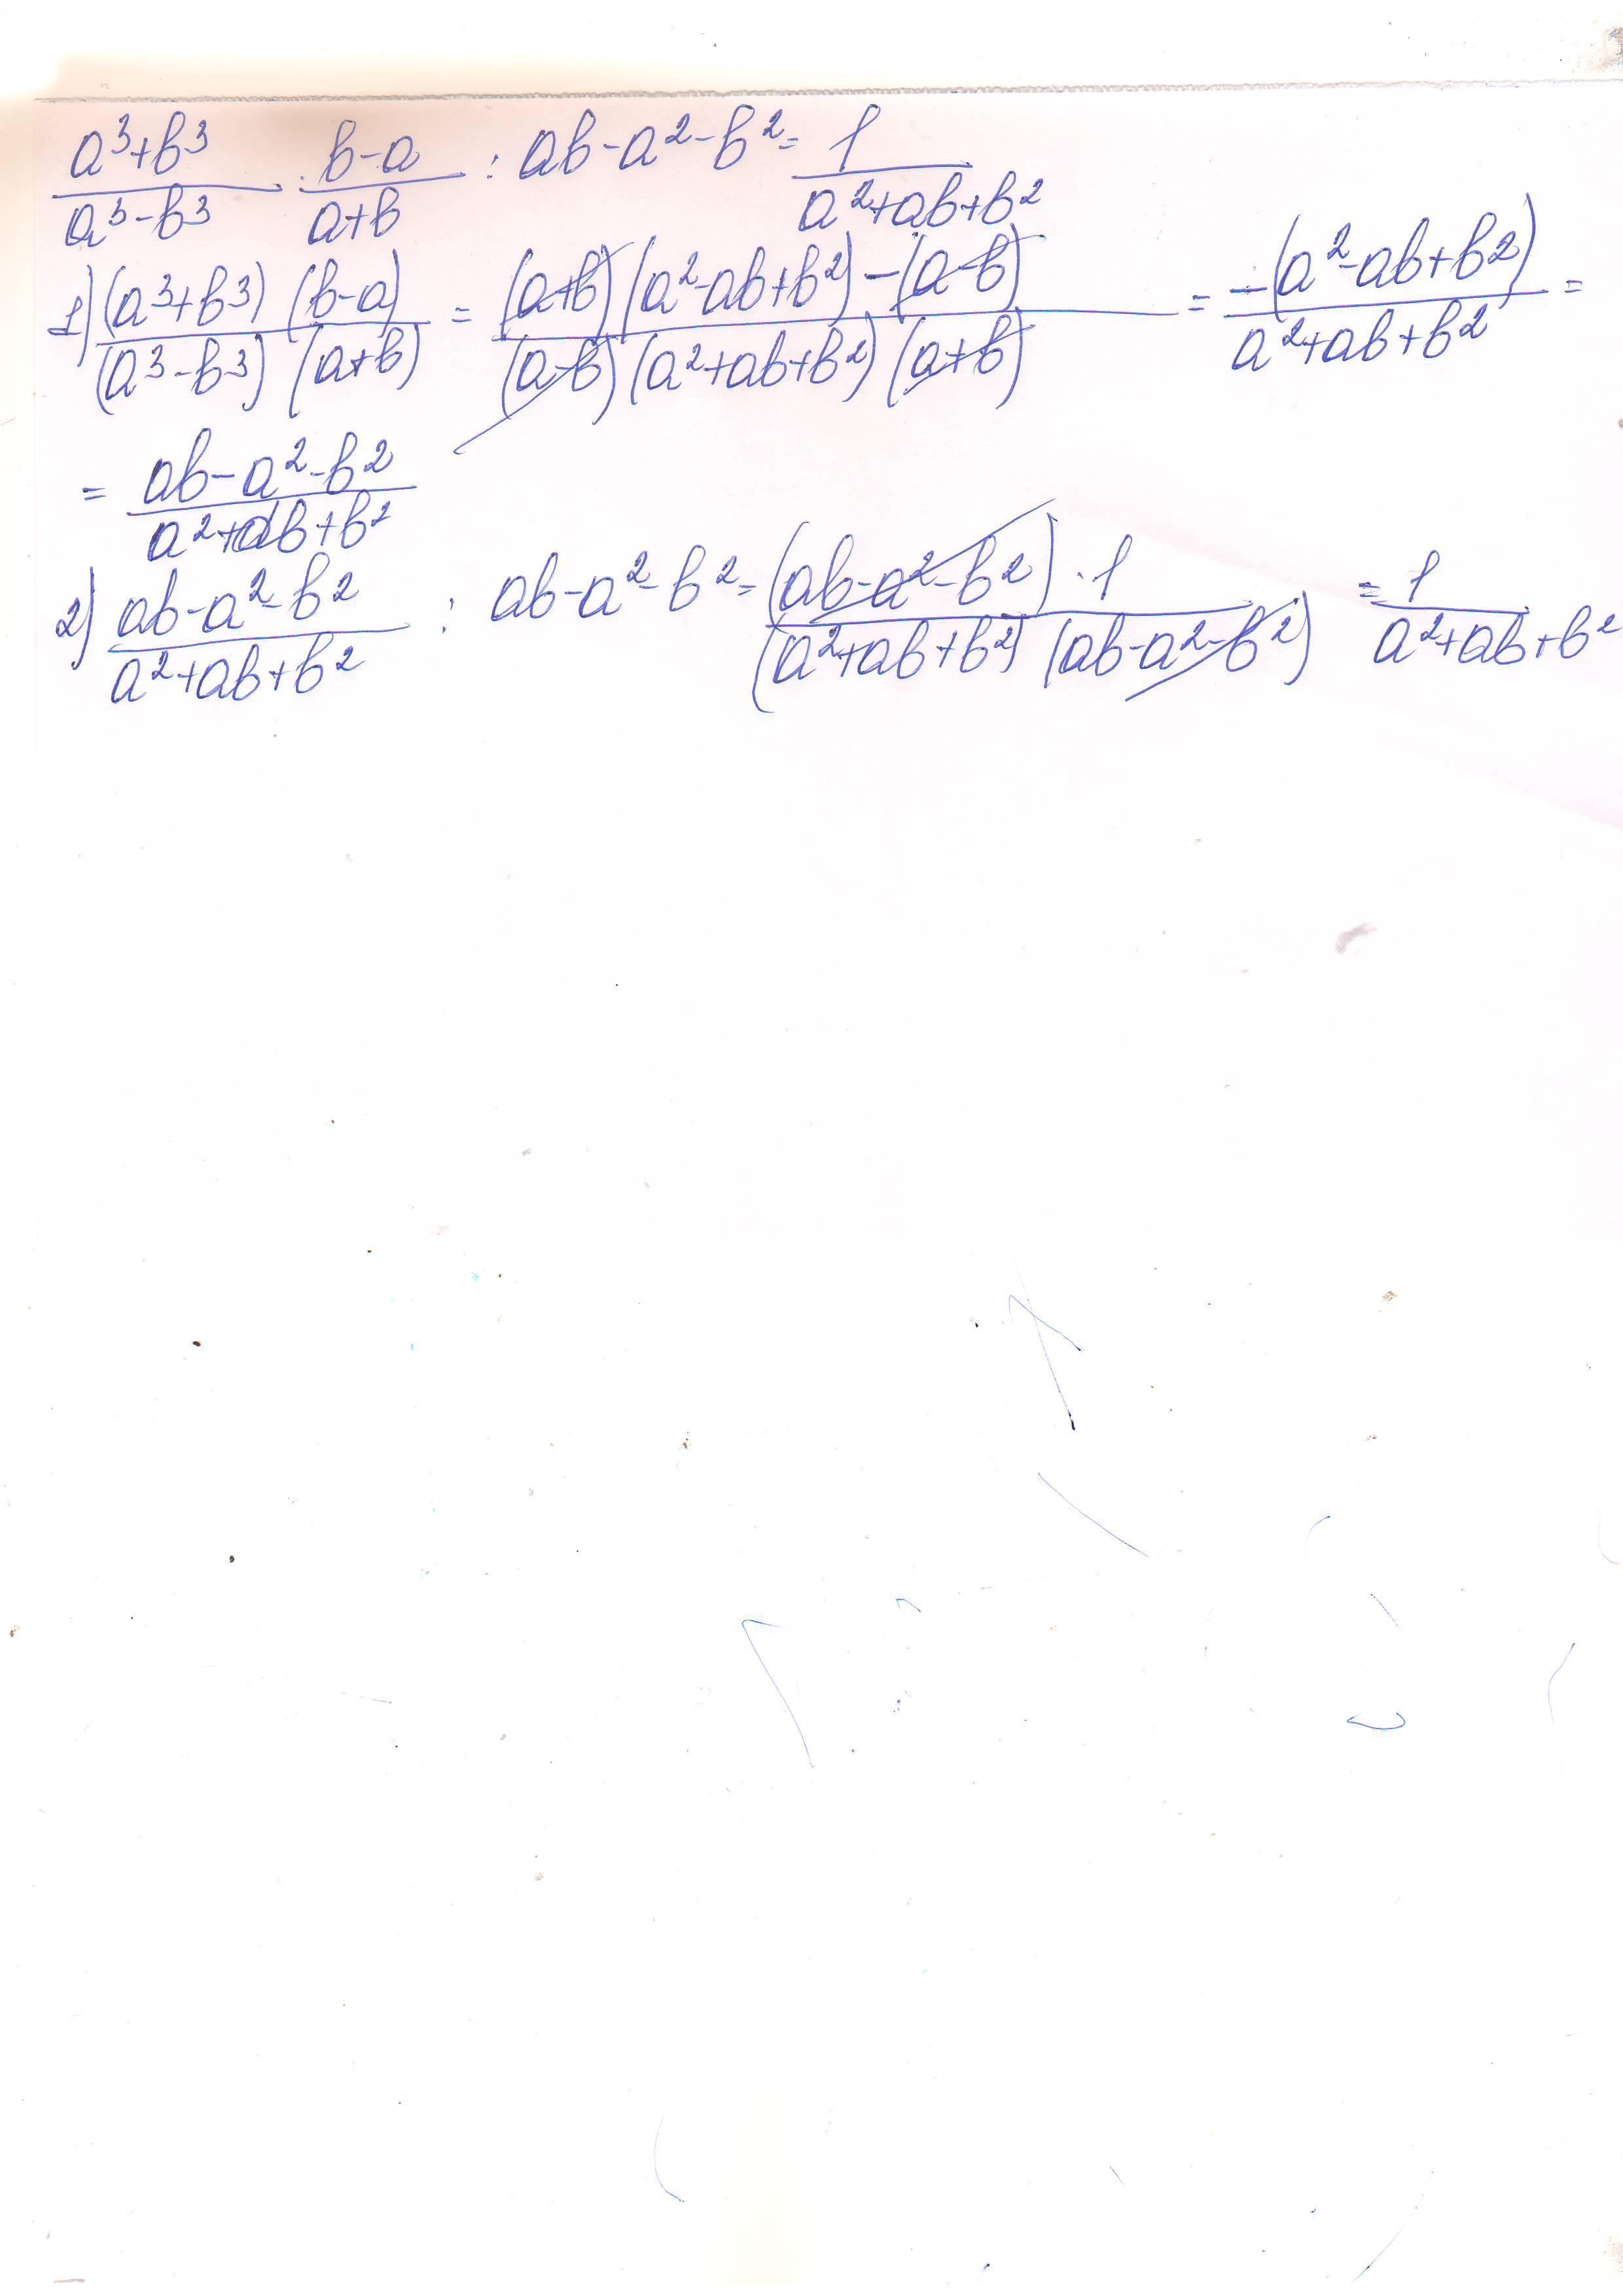 (a³+b³)/(a³-b³) · (b-a)/(a+b) : ab-a²-b² = 1/(a²+ab+b²)
1) (a³+b³)(b-a)/((a³-b³)(a+b)) = (a+b)(a²-ab+b²)-(a-b)/((a-b)(a²+ab+b²)(a+b)) = -(a²-ab+b²)/(a²+ab+b²) =
= (ab-a²-b²)/(a²+ab+b²)
2) (ab-a²-b²)/(a²+ab+b²) : ab-a²-b² = (ab-a²-b²)·1/((a²+ab+b²)(ab-a²-b²)) = 1/(a²+ab+b²)